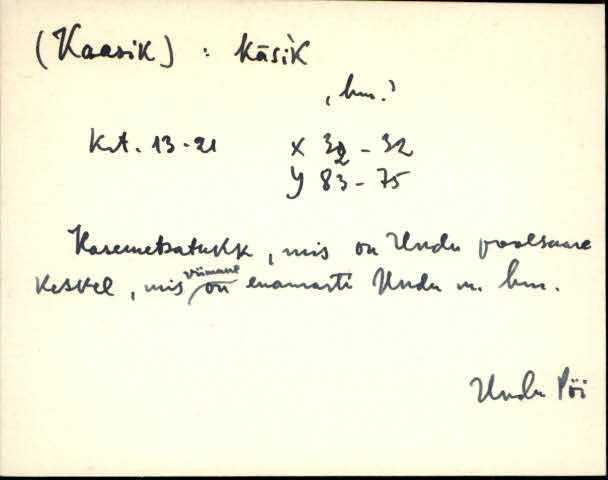 (Kaasik) : kāsìk
, hm.?
Krt. 13-21 x 32 - 32
y 83 - 75
Kasemetsatukk, mis on Undu poolsaare
keskel, mis viimane on enamasti Undu m. hm.
Undu Pöi